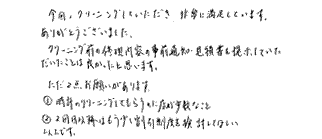 今回、クリーニングしていただき 非常に満足しています。
ありがとうございました。
クリーニング前の修理内容の事前通知・見積書を提示していた
だいたことは良かったと思います。
ただ2点お願いがあります。
① 時計のクリーニングをしてもらうのに店が少数なこと
② 2回目以降はもう少し割引制度を検討してほしい
ことです。